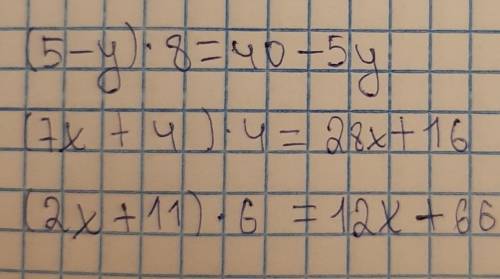 (5-y)·8=40-5y
(7x+4)·4=28x+16
(2x+11)·6=12x+66